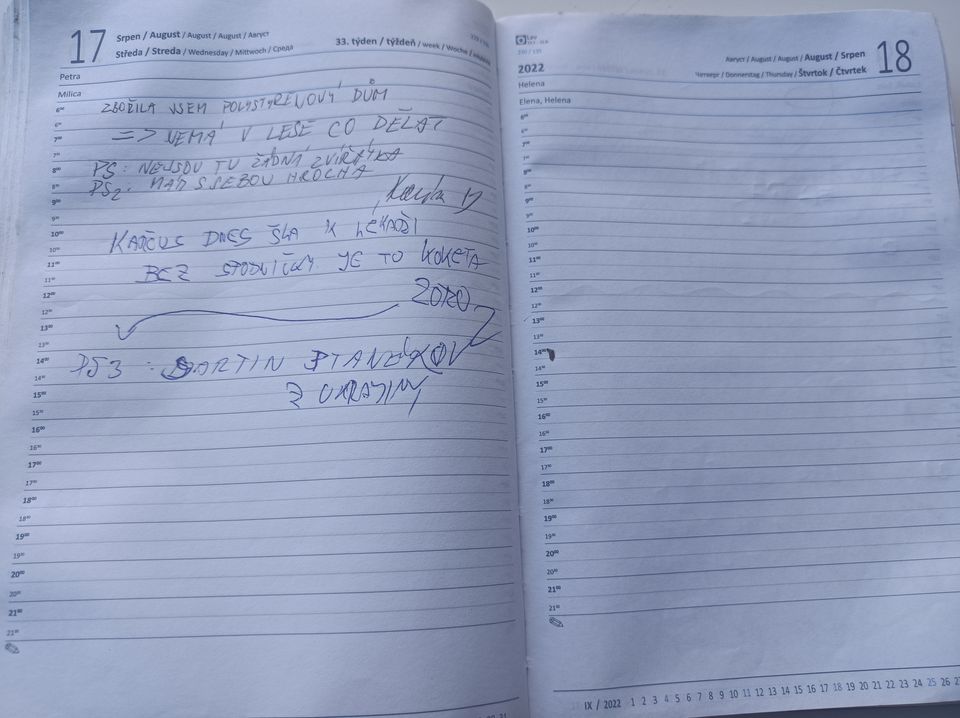 17
Srpen / August / August / August / Август
Středa / Streda / Wednesday / Mittwoch / Среда
33. týden / týždeň / week / Woche /
Petra
Milica
ZBOŘILA JSEM POLYSTYRENOVÝ DŮM
=> NEMÁ V LESE CO DĚLAT
PS: NEJSOU TU ŽÁDNÁ ZVÍŘÁTKA
PS2: MÁM S SEBOU HROCHA
KAČČUS DNES ŠLA K LÉKAŘI
BEZ SPODNIČKY JE TO KOKETA
ZORO
PS3 : MARTIN
Z UKRAJINY
600
630
700
730
800
830
900
930
1000
1030
1100
1130
1200
1230
1300
1330
1400
1430
1500
1530
1600
1630
1700
1730
1800
1830
1900
1930
2000
2030
2100
2130
Lev
2022
Август / August / August / August / Srpen
Четверг / Donnerstag / Thursday / Štvrtok / Čtvrtek
18
Helena
Elena, Helena
600
630
700
730
800
830
900
930
1000
1030
1100
1130
1200
1230
1300
1330
1400
1430
1500
1530
1600
1630
1700
1730
1800
1830
1900
1930
2000
2030
2100
2130
IX / 2022 1 2 3 4 5 6 7 8 9 10 11 12 13 14 15 16 17 18 19 20 21 22 23 24 25 26